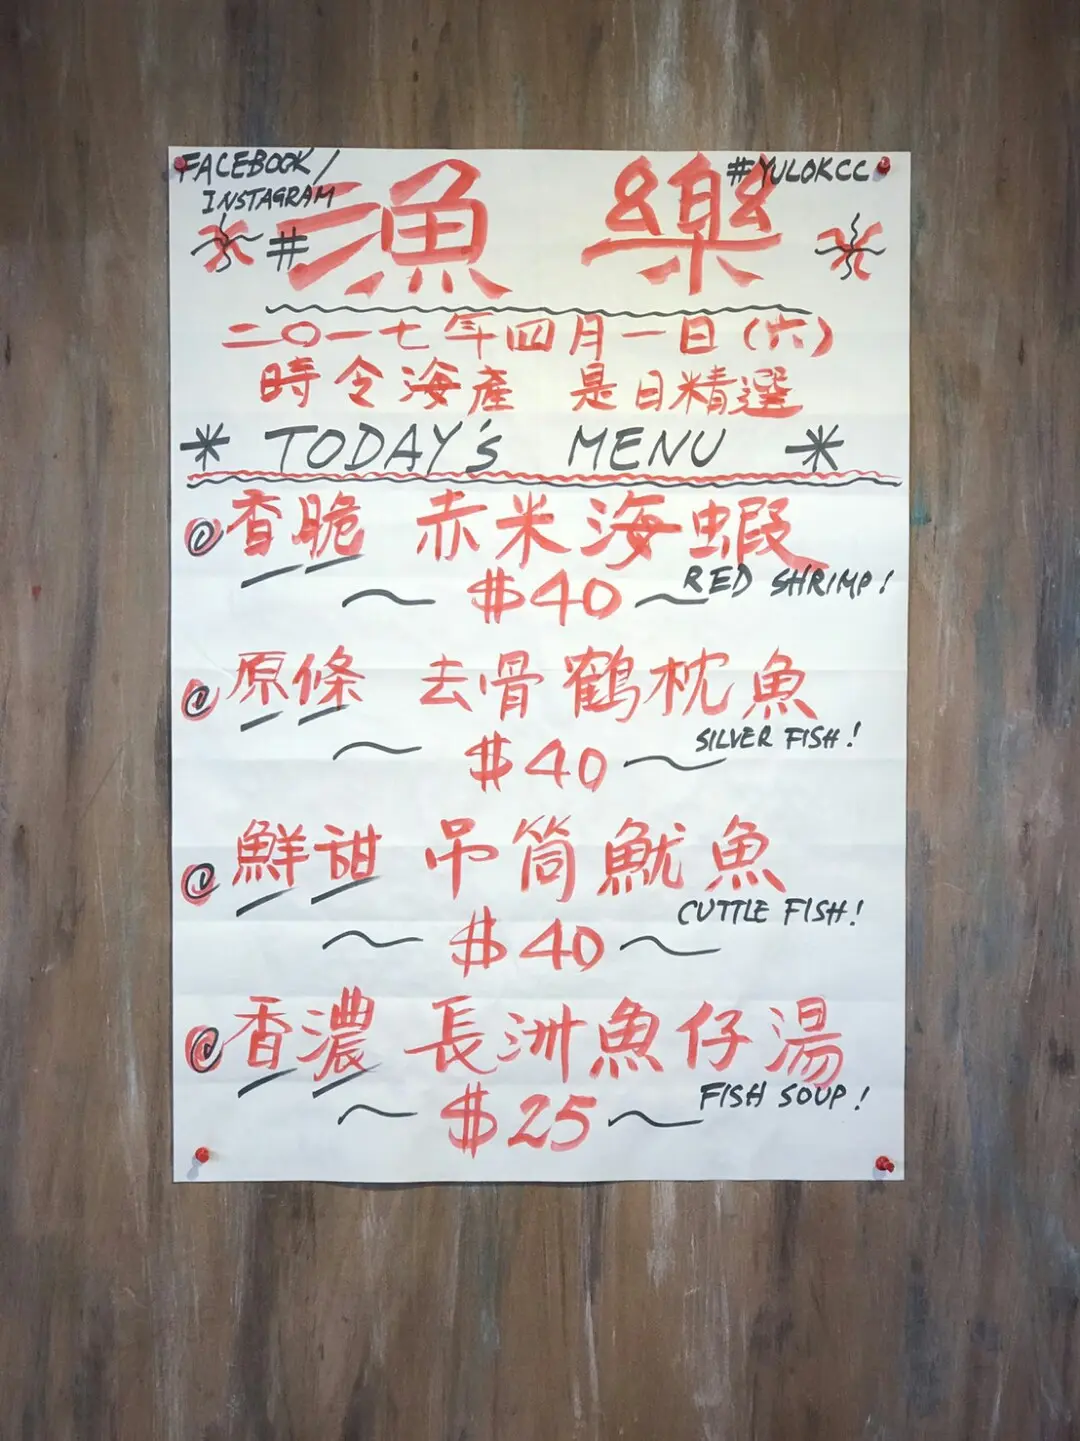 FACEBOOK/
INSTAGRAM
#漁樂
#YULOKCC
二〇一七年四月一日(六)
時令海產 是日精選
* TODAY's MENU *
@香脆 赤米海蝦
RED SHRIMP!
~ $40 ~
@原條 去骨鶴枕魚
SILVER FISH!
~ $40 ~
@鮮甜 吊筒魷魚
CUTTLE FISH!
~ $40 ~
@香濃 長洲魚仔湯
FISH SOUP!
~ $25 ~